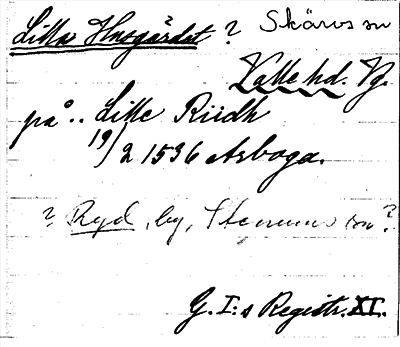 Lilla Husgärdet ? Skärvs sn
Valle hd. Vg.
på.. Lille Riidh
19/2 1536 Arboga.
? Ryd, by, Stenums sn?
G. I:s Registr. XI.